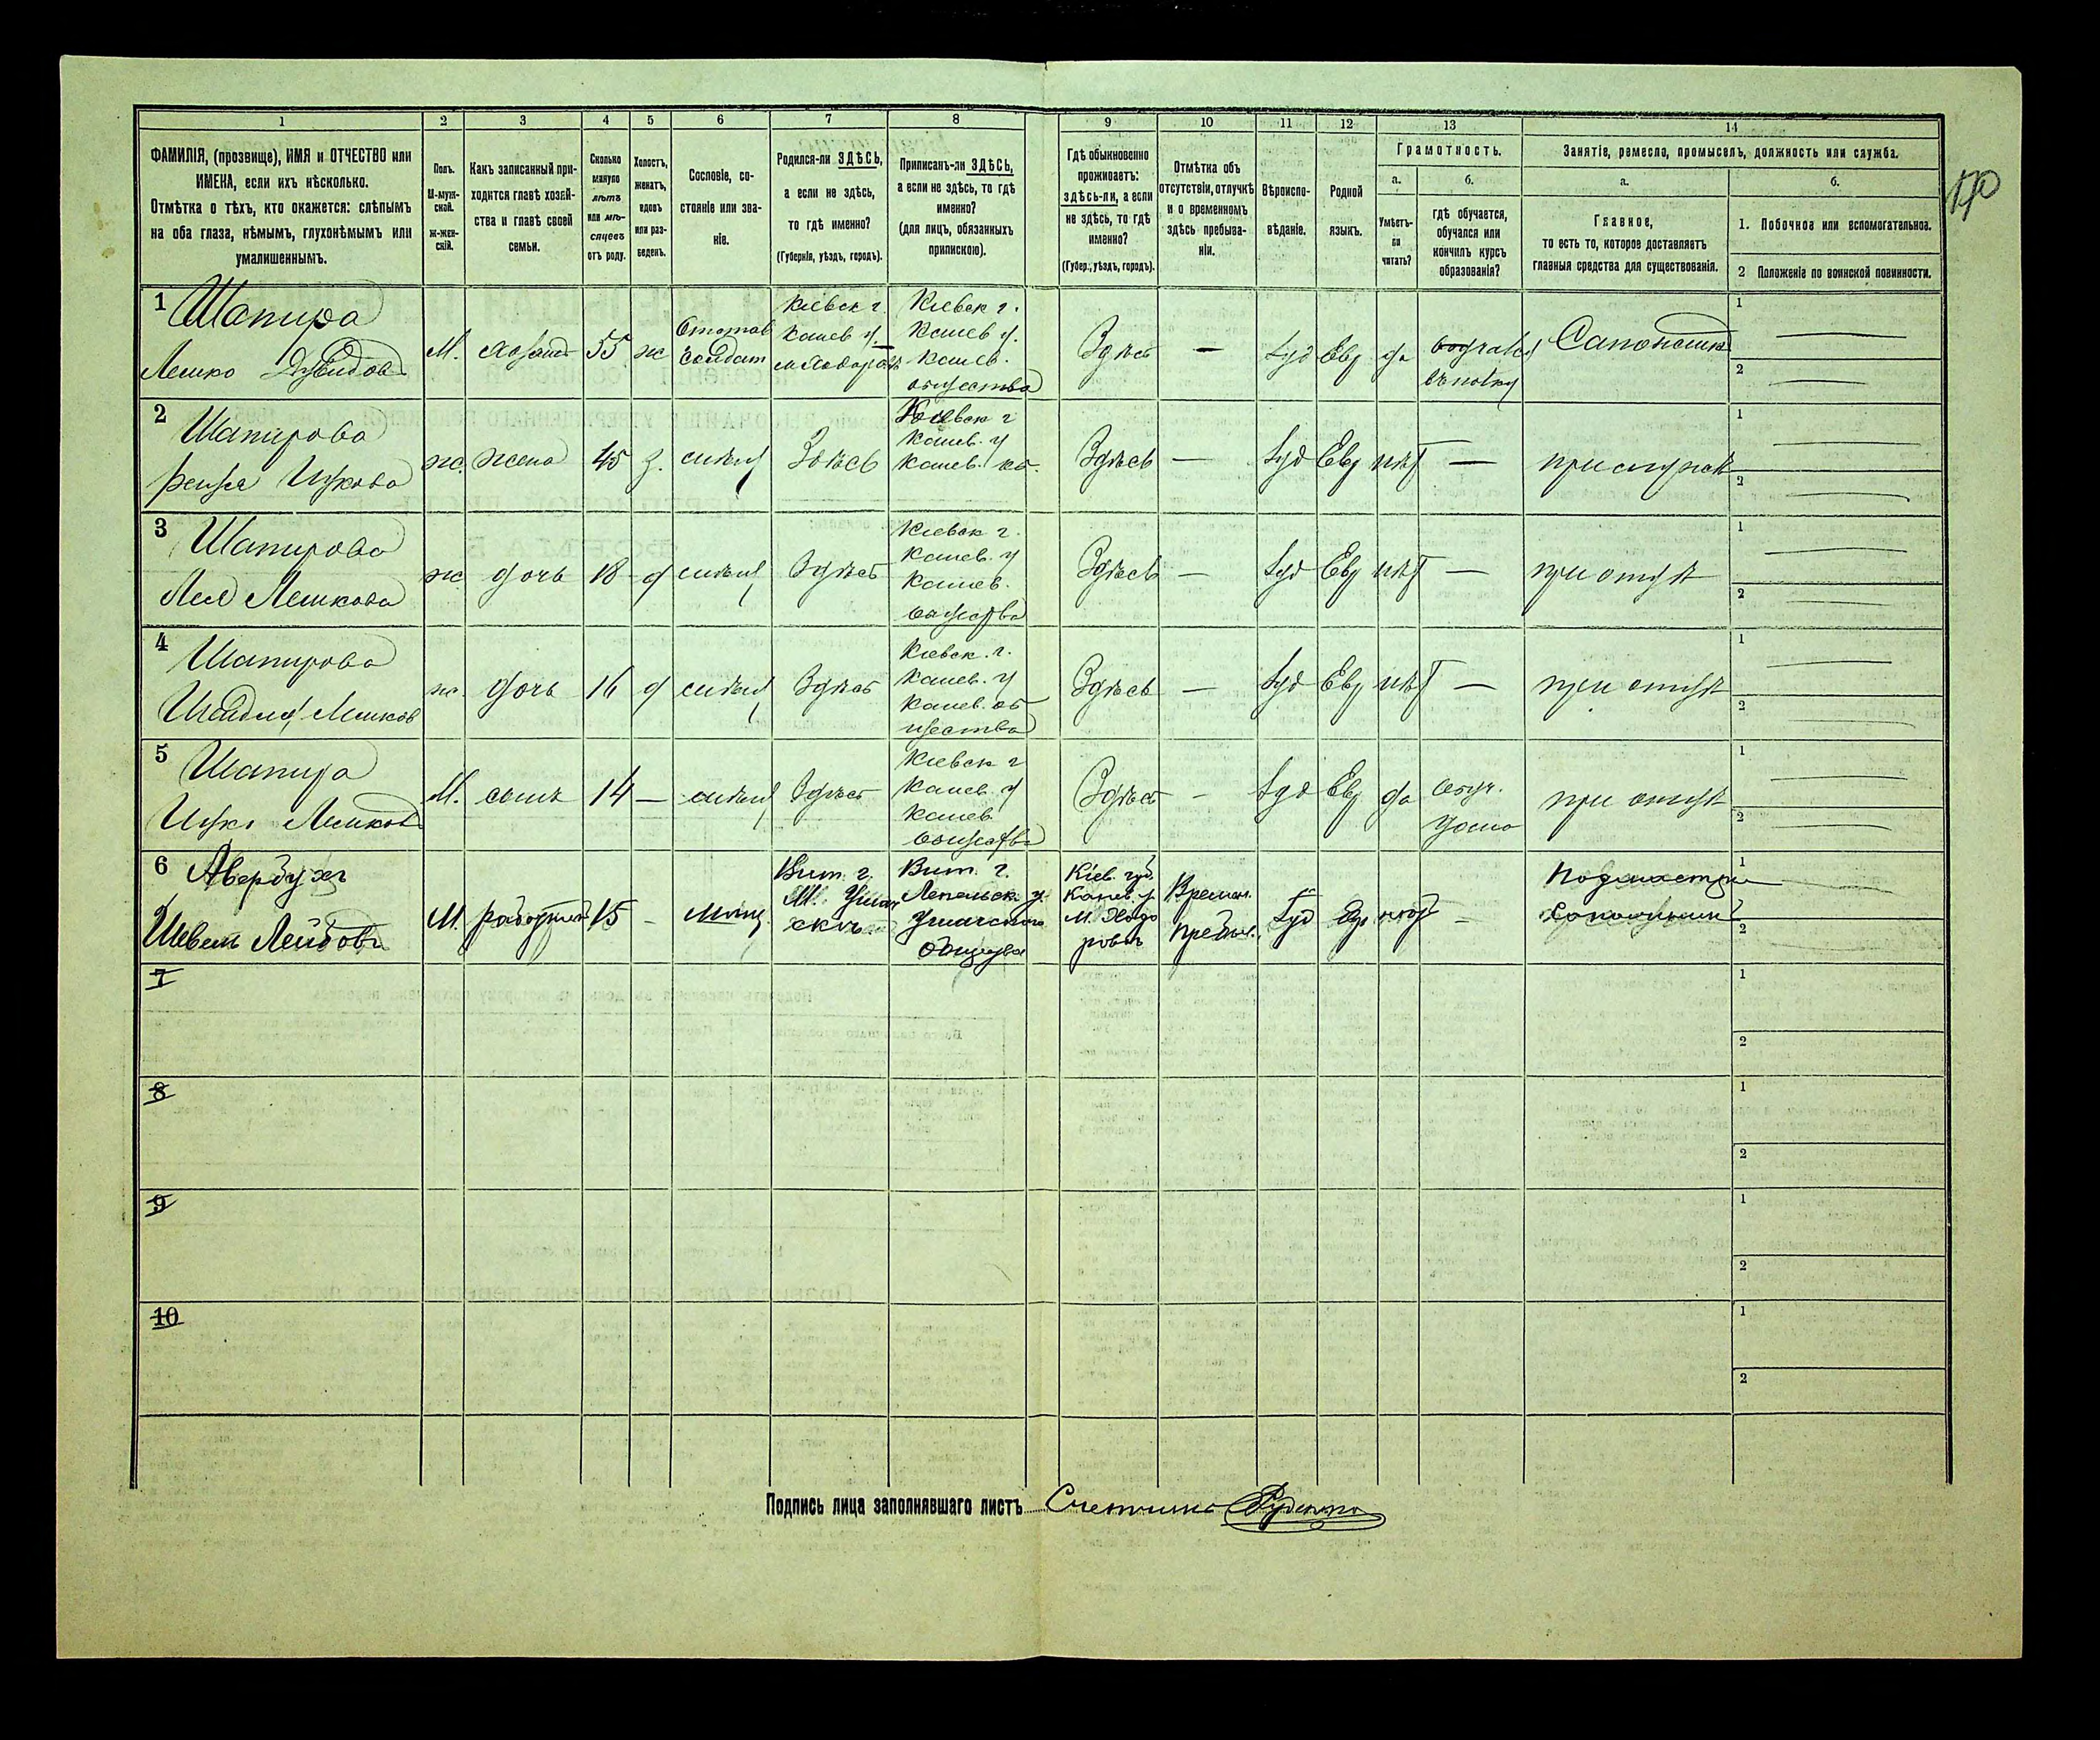 1 2 3 4 5 6 7 8 9 10 11 12 13 14
ФАМИЛІЯ, (прозвище), ИМЯ и ОТЧЕСТВО или
ИМЕНА, если ихъ нѣсколько.
Отмѣтка о тѣхъ, кто окажется: слѣпымъ
на оба глаза, нѣмымъ, глухонѣмымъ или
умалишеннымъ.
Полъ.
М-муж-
ской.
Ж-жен-
скій.
Какъ записанный при-
ходится главѣ хозяй-
ства и главѣ своей
семьи.
Сколько
минуло
лѣтъ
или мѣ-
сяцевъ
отъ роду.
Холостъ,
женатъ,
вдовъ
или раз-
веденъ.
Сословіе, со-
стояніе или зва-
ніе.
Родился-ли ЗДѢСЬ,
а если не здѣсь,
то гдѣ именно?
(Губернія, уѣздъ, городъ).
Приписанъ-ли ЗДѢСЬ,
а если не здѣсь, то гдѣ
именно?
(для лицъ, обязанныхъ
припискою).
Гдѣ обыкновенно
проживаетъ:
здѣсь-ли, а если
не здѣсь, то гдѣ
именно?
(Губер., уѣздъ, городъ).
Отмѣтка объ
отсутствіи, отлучкѣ
и о временномъ
здѣсь пребыва-
ніи.
Вѣроиспо-
вѣданіе.
Родной
языкъ.
Грамотность.
а.
Умѣетъ-
ли
читать?
б.
гдѣ обучается,
обучался или
кончилъ курсъ
образованія?
Занятіе, ремесло, промыселъ, должность или служба.
а.
Главное,
то есть то, которое доставляетъ
главныя средства для существованія.
б.
1. Побочное или вспомогательное.
2 Положеніе по воинской повинности.
1 Шапира
Лешко Дувидов
М. хозяин 55 ж
Отстав
Солдат
Кіевск г.
Канев у.
Кіевск г.
Канев у.
Канев.
общества
Здѣсь — Іуд Евр да
1
2
2 Шапирова
Ицкова
ж. жена 45 з. Здѣсь
Кіевск г
Канев. у
Канев.
Здѣсь — Іуд Евр нѣт —
при мужѣ
1
2
3 Шапирова
Лея Лешкова
ж дочь 18 д Здѣсь
Кіевск г.
Канев. у
Канев.
общества
Здѣсь — Іуд Евр нѣт — при отцѣ
1
2
4 Шапирова
Лешков
ж. дочь 16 д Здѣсь
Кіевск. г.
Канев. у
Канев. об
щества
Здѣсь — Іуд Евр нѣт — при отцѣ
1
2
5 Шапира
Ицко Лешков
М. сынъ 14 — Здѣсь
Кіевск г
Канев. у
Канев
общества
Здѣсь - Іуд Евр да
обуч.
дома
при отцѣ
1
2
6 Авербухъ
Шевель Лейбовъ
М. 15 - Мѣщ.
Вит. г.
М. Ушач
скъ
Вит. г.
Лепельск у.
Ушачскаго
общества
Кіев. губ.
Канев. у
М. Ходо
ровъ
Времен.
Пребыв.
Іуд Евр нѣт -
Подмастер
1
2
7
1
2
8
1
2
9
1
2
10
1
2
Подпись лица заполнявшаго листъ Счетчикъ